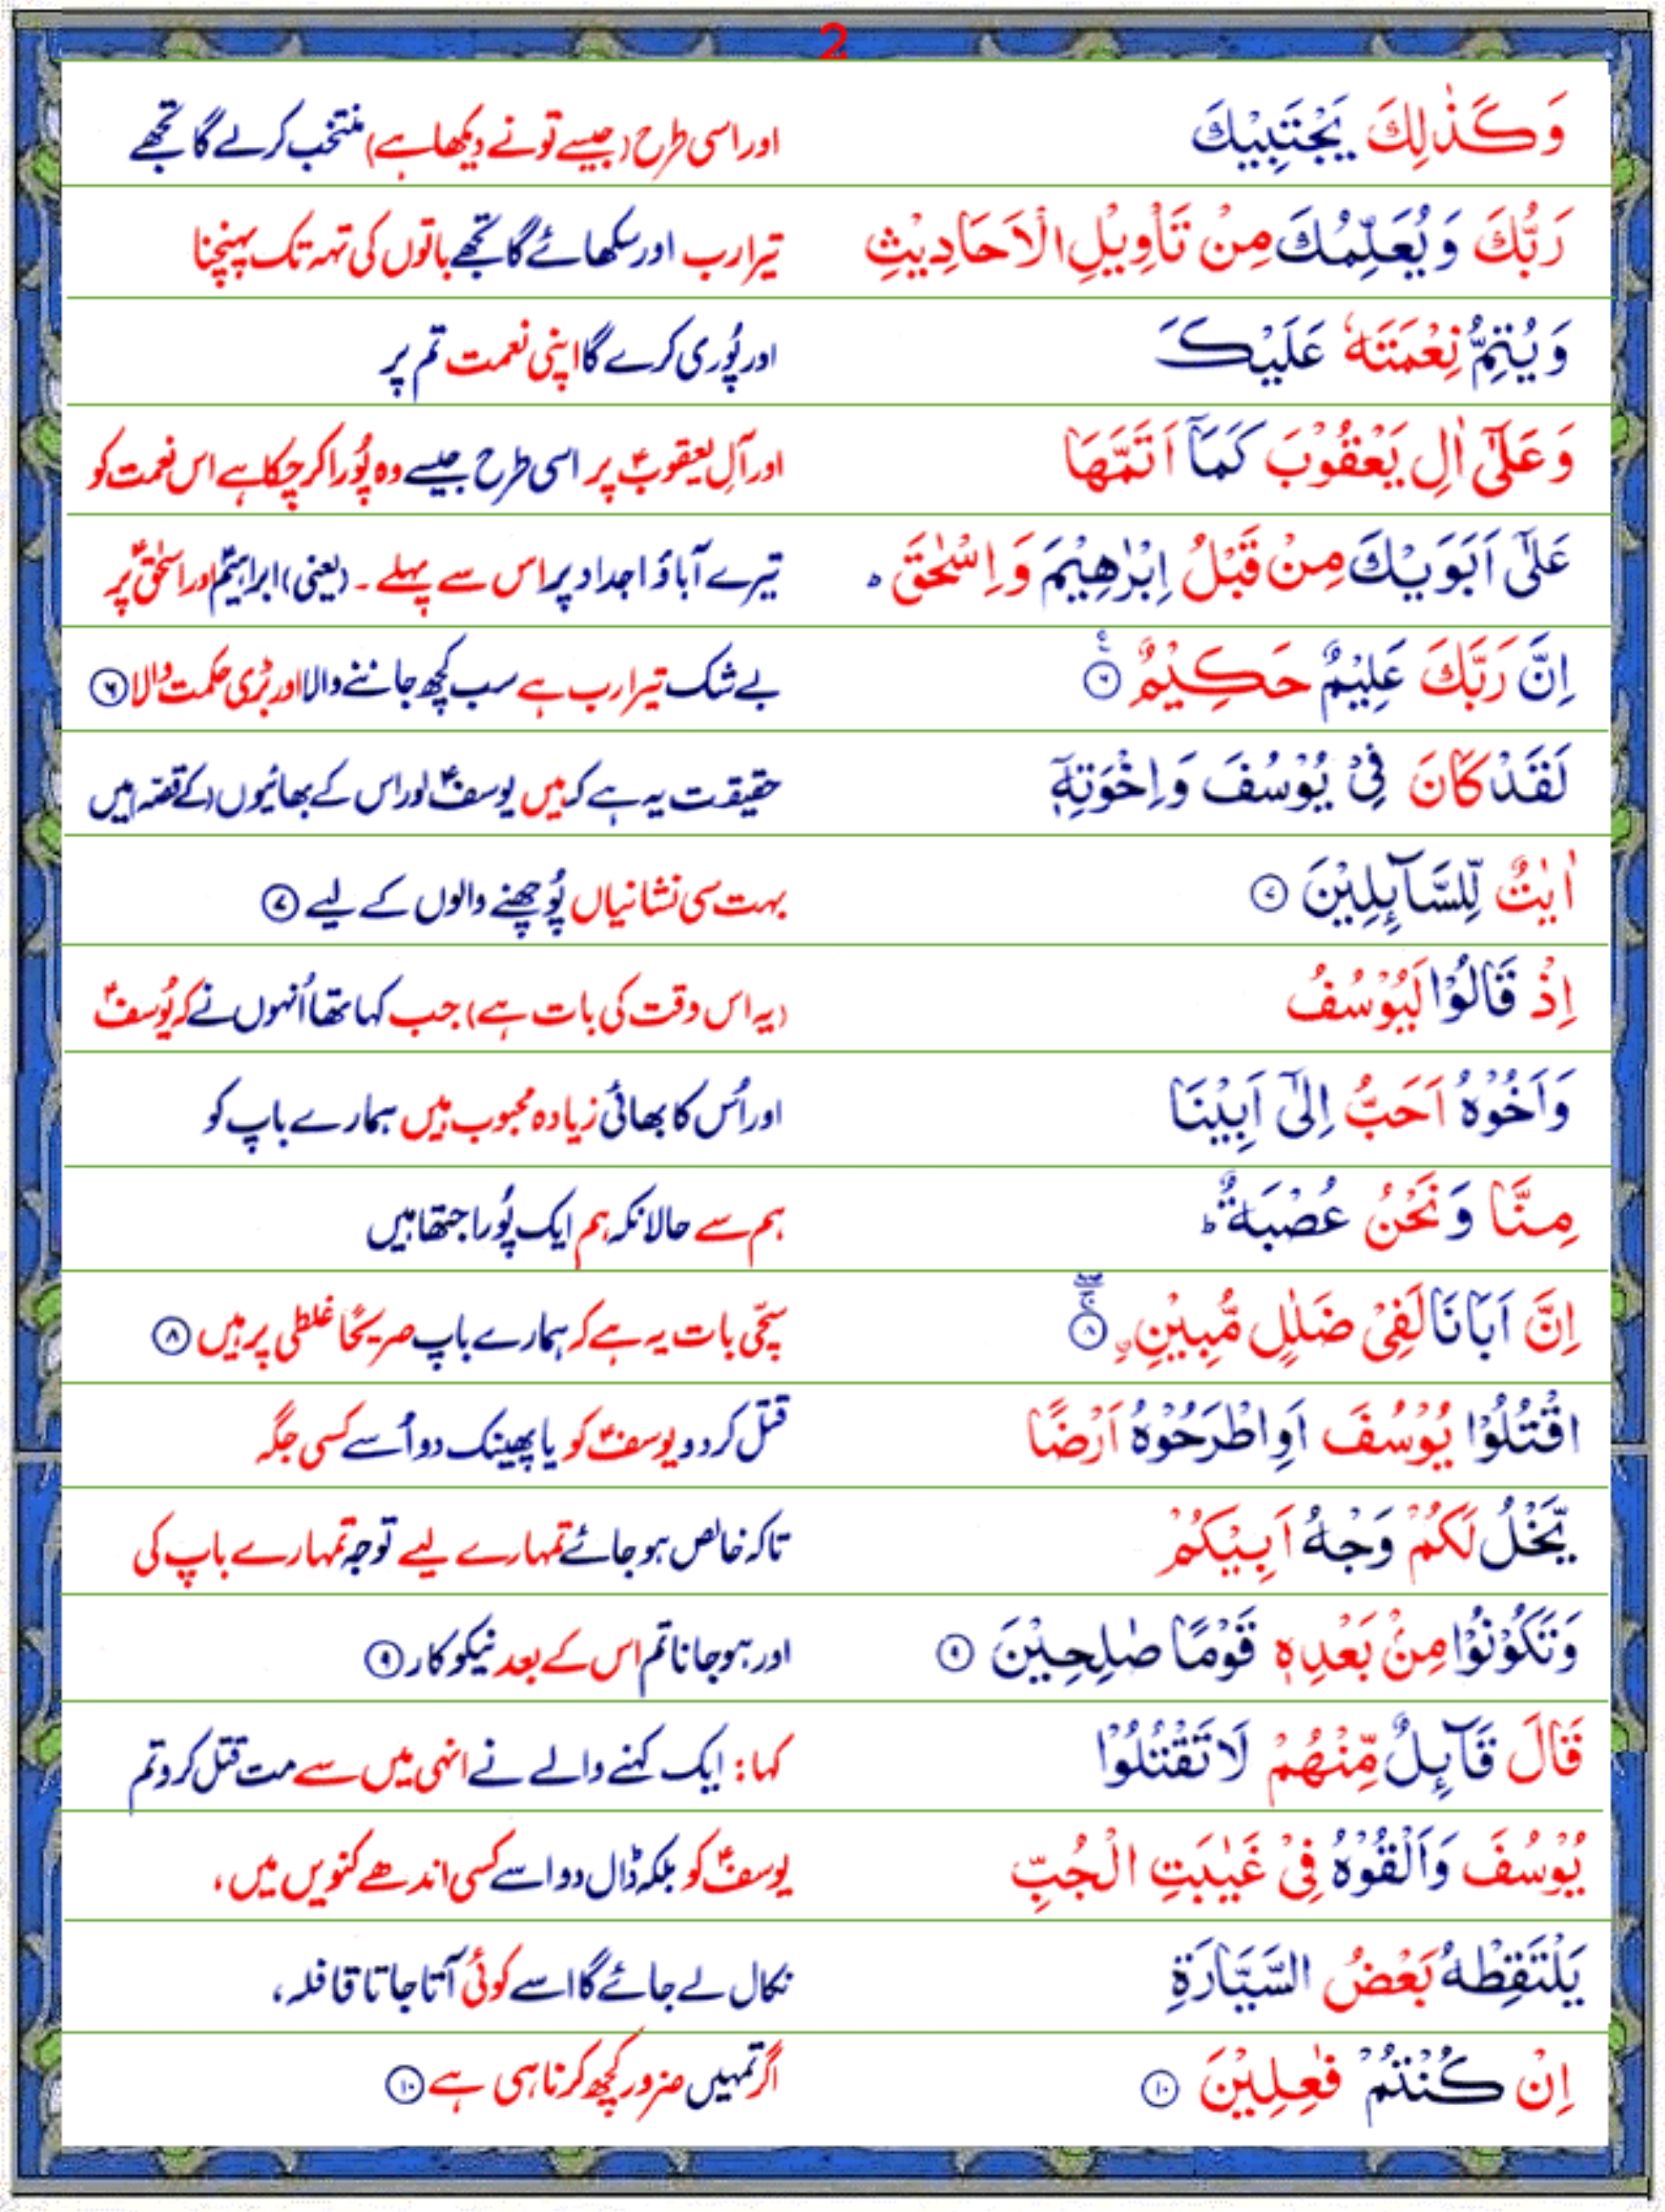 2
وَكَذٰلِكَ يَجْتَبِيْكَ اور اسی طرح (جیسے تو نے دیکھا ہے) منتخب کرلے گا تجھے
رَبُّكَ وَيُعَلِّمُكَ مِنْ تَاْوِيْلِ الْاَحَادِيْثِ تیرا رب اور سکھائے گا تجھے باتوں کی تہہ تک پہنچنا
وَيُتِمُّ نِعْمَتَهٗ عَلَيْكَ اور پُوری کرے گا اپنی نعمت تم پر
وَعَلٰٓى اٰلِ يَعْقُوْبَ كَمَآ اَتَمَّهَا اور آلِ یعقوبؑ پر اسی طرح جیسے وہ پُورا کرچکا ہے اس نعمت کو
عَلٰٓى اَبَوَيْكَ مِنْ قَبْلُ اِبْرٰهِيْمَ وَاِسْحٰقَ ؕ تیرے آباؤ اجداد پر اس سے پہلے ۔ (یعنی) ابراہیمؑ اور اسحٰقؑ پر
اِنَّ رَبَّكَ عَلِيْمٌ حَكِيْمٌ ۶ۧ بے شک تیرا رب ہے سب کچھ جاننے والا اور بڑی حکمت والا ۶
لَقَدْ كَانَ فِيْ يُوْسُفَ وَاِخْوَتِهٖٓ حقیقت یہ ہے کہ ہیں یوسفؑ اور اس کے بھائیوں (کے قصّہ) میں
اٰيٰتٌ لِّلسَّآئِلِيْنَ ۷ بہت سی نشانیاں پُوچھنے والوں کے لیے ۷
اِذْ قَالُوْا لَيُوْسُفُ (یہ اس وقت کی بات ہے) جب کہا تھا اُنہوں نے کہ یُوسفؑ
وَاَخُوْهُ اَحَبُّ اِلٰٓى اَبِيْنَا اور اُس کا بھائی زیادہ محبوب ہیں ہمارے باپ کو
مِنَّا وَنَحْنُ عُصْبَةٌ ؕ ہم سے حالانکہ ہم ایک پُورا جتھا ہیں
اِنَّ اَبَانَا لَفِيْ ضَلٰلٍ مُّبِيْنِ ۨ ۸ۚ سچّی بات یہ ہے کہ ہمارے باپ صریحًا غلطی پر ہیں ۸
اقْتُلُوْا يُوْسُفَ اَوِ اطْرَحُوْهُ اَرْضًا قتل کردو یوسفؑ کو یا پھینک دو اُسے کسی جگہ
يَّخْلُ لَكُمْ وَجْهُ اَبِيْكُمْ تاکہ خالص ہوجائے تمہارے لیے توجہ تمہارے باپ کی
وَتَكُوْنُوْا مِنْۢ بَعْدِهٖ قَوْمًا صٰلِحِيْنَ ۹ اور ہوجانا تم اس کے بعد نیکو کار ۹
قَالَ قَآئِلٌ مِّنْهُمْ لَا تَقْتُلُوْا کہا: ایک کہنے والے نے انہی میں سے مت قتل کرو تم
يُوْسُفَ وَاَلْقُوْهُ فِيْ غَيٰبَتِ الْجُبِّ یوسفؑ کو بلکہ ڈال دو اسے کسی اندھے کنویں میں ،
يَلْتَقِطْهُ بَعْضُ السَّيَّارَةِ نکال لے جائے گا اسے کوئی آتا جاتا قافلہ ،
اِنْ كُنْتُمْ فٰعِلِيْنَ ۱۰ اگر تمہیں ضرور کچھ کرنا ہی ہے ۱۰